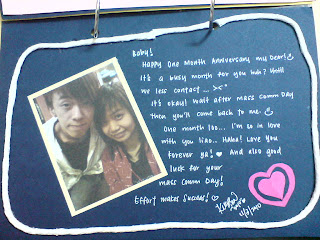 Baby!
Happy One Month Anniversary, my Dear!
It's a busy month for you huh?
we less contact ... ><"
It's okay! Wait after mass comm Day
then you'll come back to me.
One month loo... I'm so in love
with you liao... HAHA! Love you
forever ya! ♥ And also good
luck for your
mass comm Day!
Effort makes Success! ♡